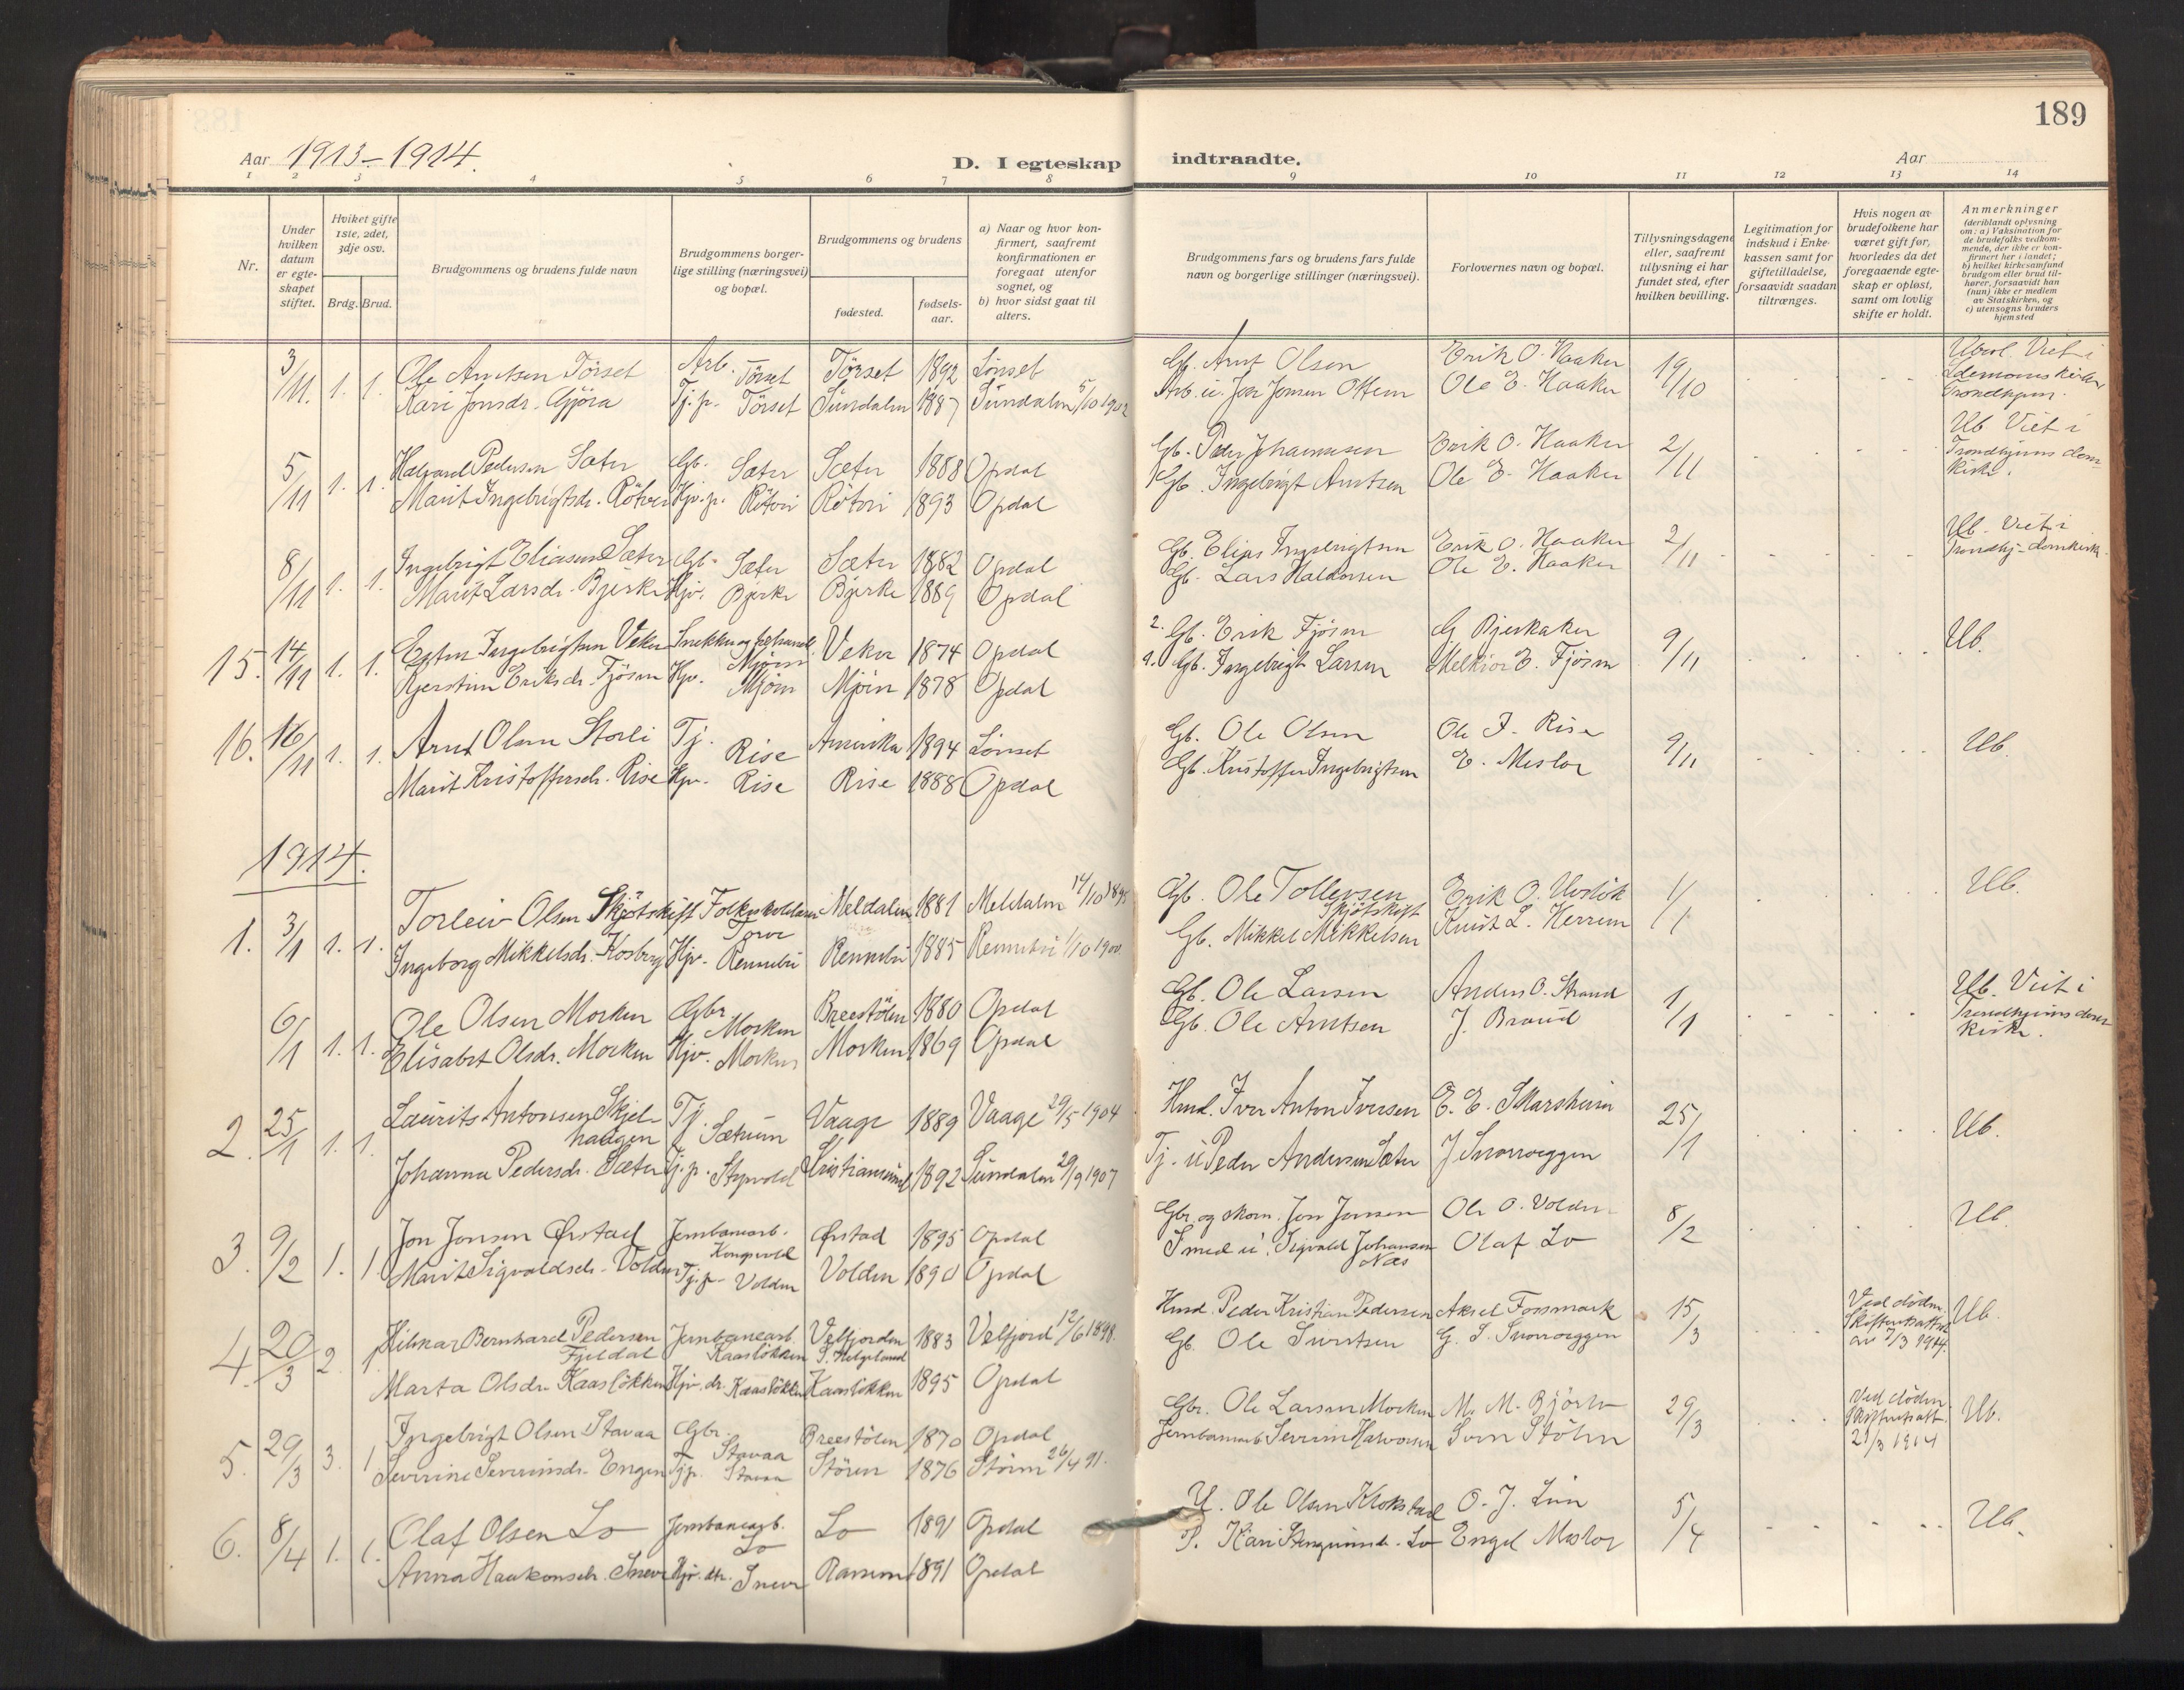 189
Aar 1913-1914.
D. I egteskap indtraadte.
Aar
1 2 3 4 5 6 7 8 9 10 11 12 13 14
Nr.
Under hvilken datum er egte-skapet stiftet.
Hviket gifte 1ste, 2det, 3dje osv.
Brdg. Brud.
Brudgommens og brudens fulde navn
Brudgommens borger-lige stilling (næringsvei) og bopæl.
Brudgommens og brudens
fødested.
fødsels-aar.
a) Naar og hvor kon-firmert, saafremt konfirmationen er foregaat utenfor sognet, og
b) hvor sidst gaat til alters.
Brudgommens fars og brudens fars fulde navn og borgerlige stillinger (næringsvei).
Forlovernes navn og bopæl.
Tillysningsdagene eller, saafremt tillysning ei har fundet sted, efter hvilken bevilling.
Legitimation for indskud i Enke-kassen samt for giftetilladelse, forsaavidt saadan tiltrænges.
Hvis nogen av brudefolkene har været gift før, hvorledes da det foregaaende egte-skap er opløst, samt om lovlig skifte er holdt.
Anmerkninger (deriblandt oplysning om: a) Vaksination for de brudefolks vedkom-mende, der ikke er kon-firmert her i landet; b) hvilket kirkesamfund brudgom eller brud til-hører, forsaavidt han (hun) ikke er medlem av Statskirken, og c) utensogns bruders hjemsted
3/11. 1. 1. Ole Arntsen Törset Arb. Törset Törset 1892 Lönset Gb. Arnt Olsen Erik O. Haaker 19/10 Viet i
Kari Jonsdr. Gjöra Tj.p. Törset Sundalen 1887 Sundalen 5/10 1902 Arb. u. Jon Jonsen Ottem Ole E. Haaker Trondhjem.
5/11 1. 1. Halvard Pedersen Sæter Gb. Sæter Sæter 1888 Opdal Gb. Peder Johannesen Erik O. Haaker 2/11 Ub Viet i
Marit Ingebrigtsdr. Rötvei Hjv. p. Rötvei Rötvei 1893 Opdal Gb. Ingebrigt Arntsen Ole E. Haaker Trondhjems dom kirke.
8/11 1. 1. Ingebrigt Eliasen Sæter Gb. Sæter Sæter 1882 Opdal Gb. Elias Ingebrigtsen Erik O. Haaker 2/11 Ub. Viet i
Marit Larsdr. Bjerke Hjv. Bjerke Bjerke 1889 Opdal Gb. Lars Haldorsen Ole E. Haaker Trondhj. domkirke.
15. 14/11 1. 1. Esten Ingebrigtsen Veker Snekker og Mjöen Veker 1874 Opdal 2. Gb. Erik Fjösen G. Bjerkaker 9/11 Ub.
Kjerstine Eriksdr. Fjösen Hjv. Mjöen Mjöen 1878 Opdal 1. Gb. Ingebrigt Larsen Melkior E. Fjösen
16. 16/11 1. 1. Arnt Olsen Storli Tj. Rise Amerika 1894 Lönset Gb. Ole Olsen Ole J. Rise 9/11 Ub.
Marit Kristoffersdr. Rise Hjv. Rise Rise 1888 Opdal Gb. Kristoffer Ingebrigtsen E. Mesloe
1914.
1. 3/1 1. 1. Torleiv Olsen Skjötskift Torve Meldalen 1881 Meldalen 14/10 1895 Gb. Ole Tollevsen Skjötskift Erik O. Urvlök 1/1 Ub.
Ingeborg Mikkelsdr. Kosberg Hjv. Rennebu Rennebu 1885 Rennebu 1/10 1900. Gb. Mikkel Mikkelsen Knut L. Herrem
6/1 1. 1. Ole Olsen Morken Gbr. Morken Breestölen 1880 Opdal Gb. Ole Larsen Anders O. Strand 1/1 Ub. Viet i
Elisabet Olsdr. Morken Hjv. Morken Morken 1869 Opdal Gb. Ole Arntsen J. Brand Trondhjems dom kirke.
2. 25/1 1. 1. Laurits Antonsen Skjel-haugen Tj. Sætrum Vaage 1889 Vaage 29/5 1904 Hmd. Iver Anton Iversen E. E. Skarsheim 25/1 Ub.
Johanna Pedersdr. Sæter Tj. p. Kristiansund 1892 Sundalen 29/9 1907 Tj. u. Peder Andersen Sæter J. Snoroeggen
3. 9/2 1. 1. Jon Jonsen Ørstad Jernbanearb. Kongsvold Ørstad 1895 Opdal Gbr. og skom. Jon Jonsen Ole O. Volden 8/2 Ub.
Marit Sigvaldsdr. Volden Tj.p. Volden Volden 1890 Opdal Smed u. Sigvald Johansen Næs Olaf Lo
4. 20/3 2. 1. Hilmar Bernhard Pedersen Fjeldal Jernbanearb. Kaaslökken Velfjorden S. Helgeland 1883 Velfjord 12/6 1898. Hmd. Peder Kristian Pedersen Aksel Fossmark 15/3 Ved döden. Skifteattest av 7/3 1914. Ub.
Marta Olsdr. Kaaslökken Hjv. dr. Kaaslökken Kaaslökken 1895 Opdal Gb. Ole Sivertsen G. I. Snoroeggen
5. 29/3 3. 1. Ingebrigt Olsen Stavaa Gbr. Stavaa Breestölen 1870 Opdal Gbr. Ole Larsen Morken M. M. Björlo 29/3 Ved döden. Skifteatt. 21/3 1914 Ub.
Severine Severinsdr. Engen Tj.p. Stavaa Stören 1876 Stören 26/4 91. Jernbanearb. Severin Halvorsen Sven Stölen
6. 8/4 1. 1. Olaf Olsen Lo Jernbanearb. Lo Lo 1891 Opdal U. Ole Olsen Klokstad O. J. Lien 5/4 Ub.
Anna Haakonsdr. Snever Hjv. dtr. Snever 1891 Opdal P. Kari Stengrimsdr. Lo Engel Mesloe